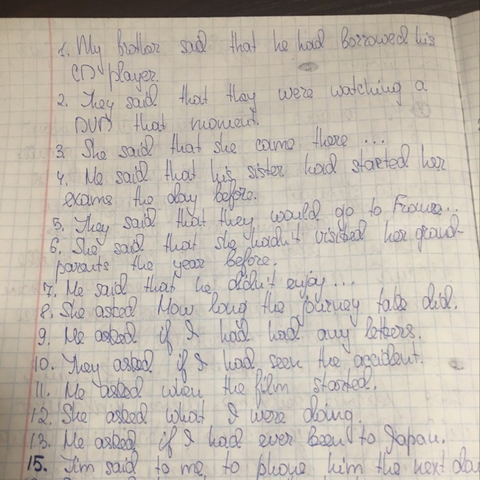 1. My brother said that he had borrowed his
CD player.
2. They said that they were watching a
DVD that moment.
3. She said that she came there ...
4. He said that his sister had started her
exams the day before.
5. They said that they would go to France...
6. She said that she hadn't visited her grand-
parents the year before.
7. He said that he didn't enjoy ...
8. She asked How long the journey take did.
9. He asked if I had had any letters.
10. They asked if I had seen the accident.
11. He asked when the film started.
12. She asked what I were doing.
13. He asked if I had ever been to Japan.
15. Jim said to me to phone him the next day